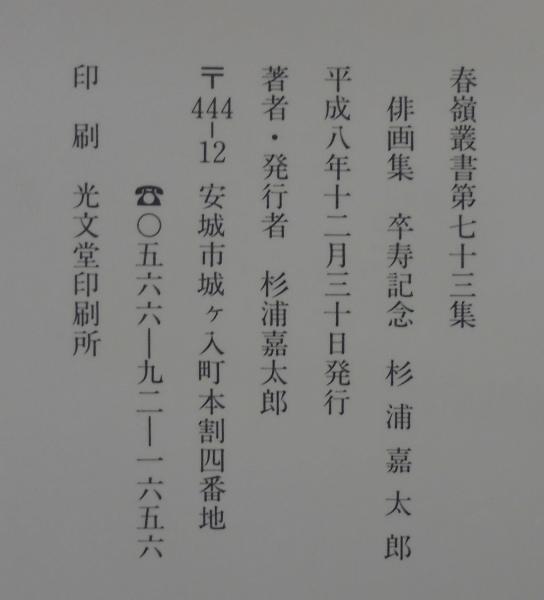 春嶺叢書第七十三集
俳画集 卒寿記念 杉浦嘉太郎
平成八年十二月三十日発行
著者・発行者 杉浦嘉太郎
〒444-12 安城市城ヶ入町本割四番地
☎〇五六六―九二―一六五六
印刷 光文堂印刷所